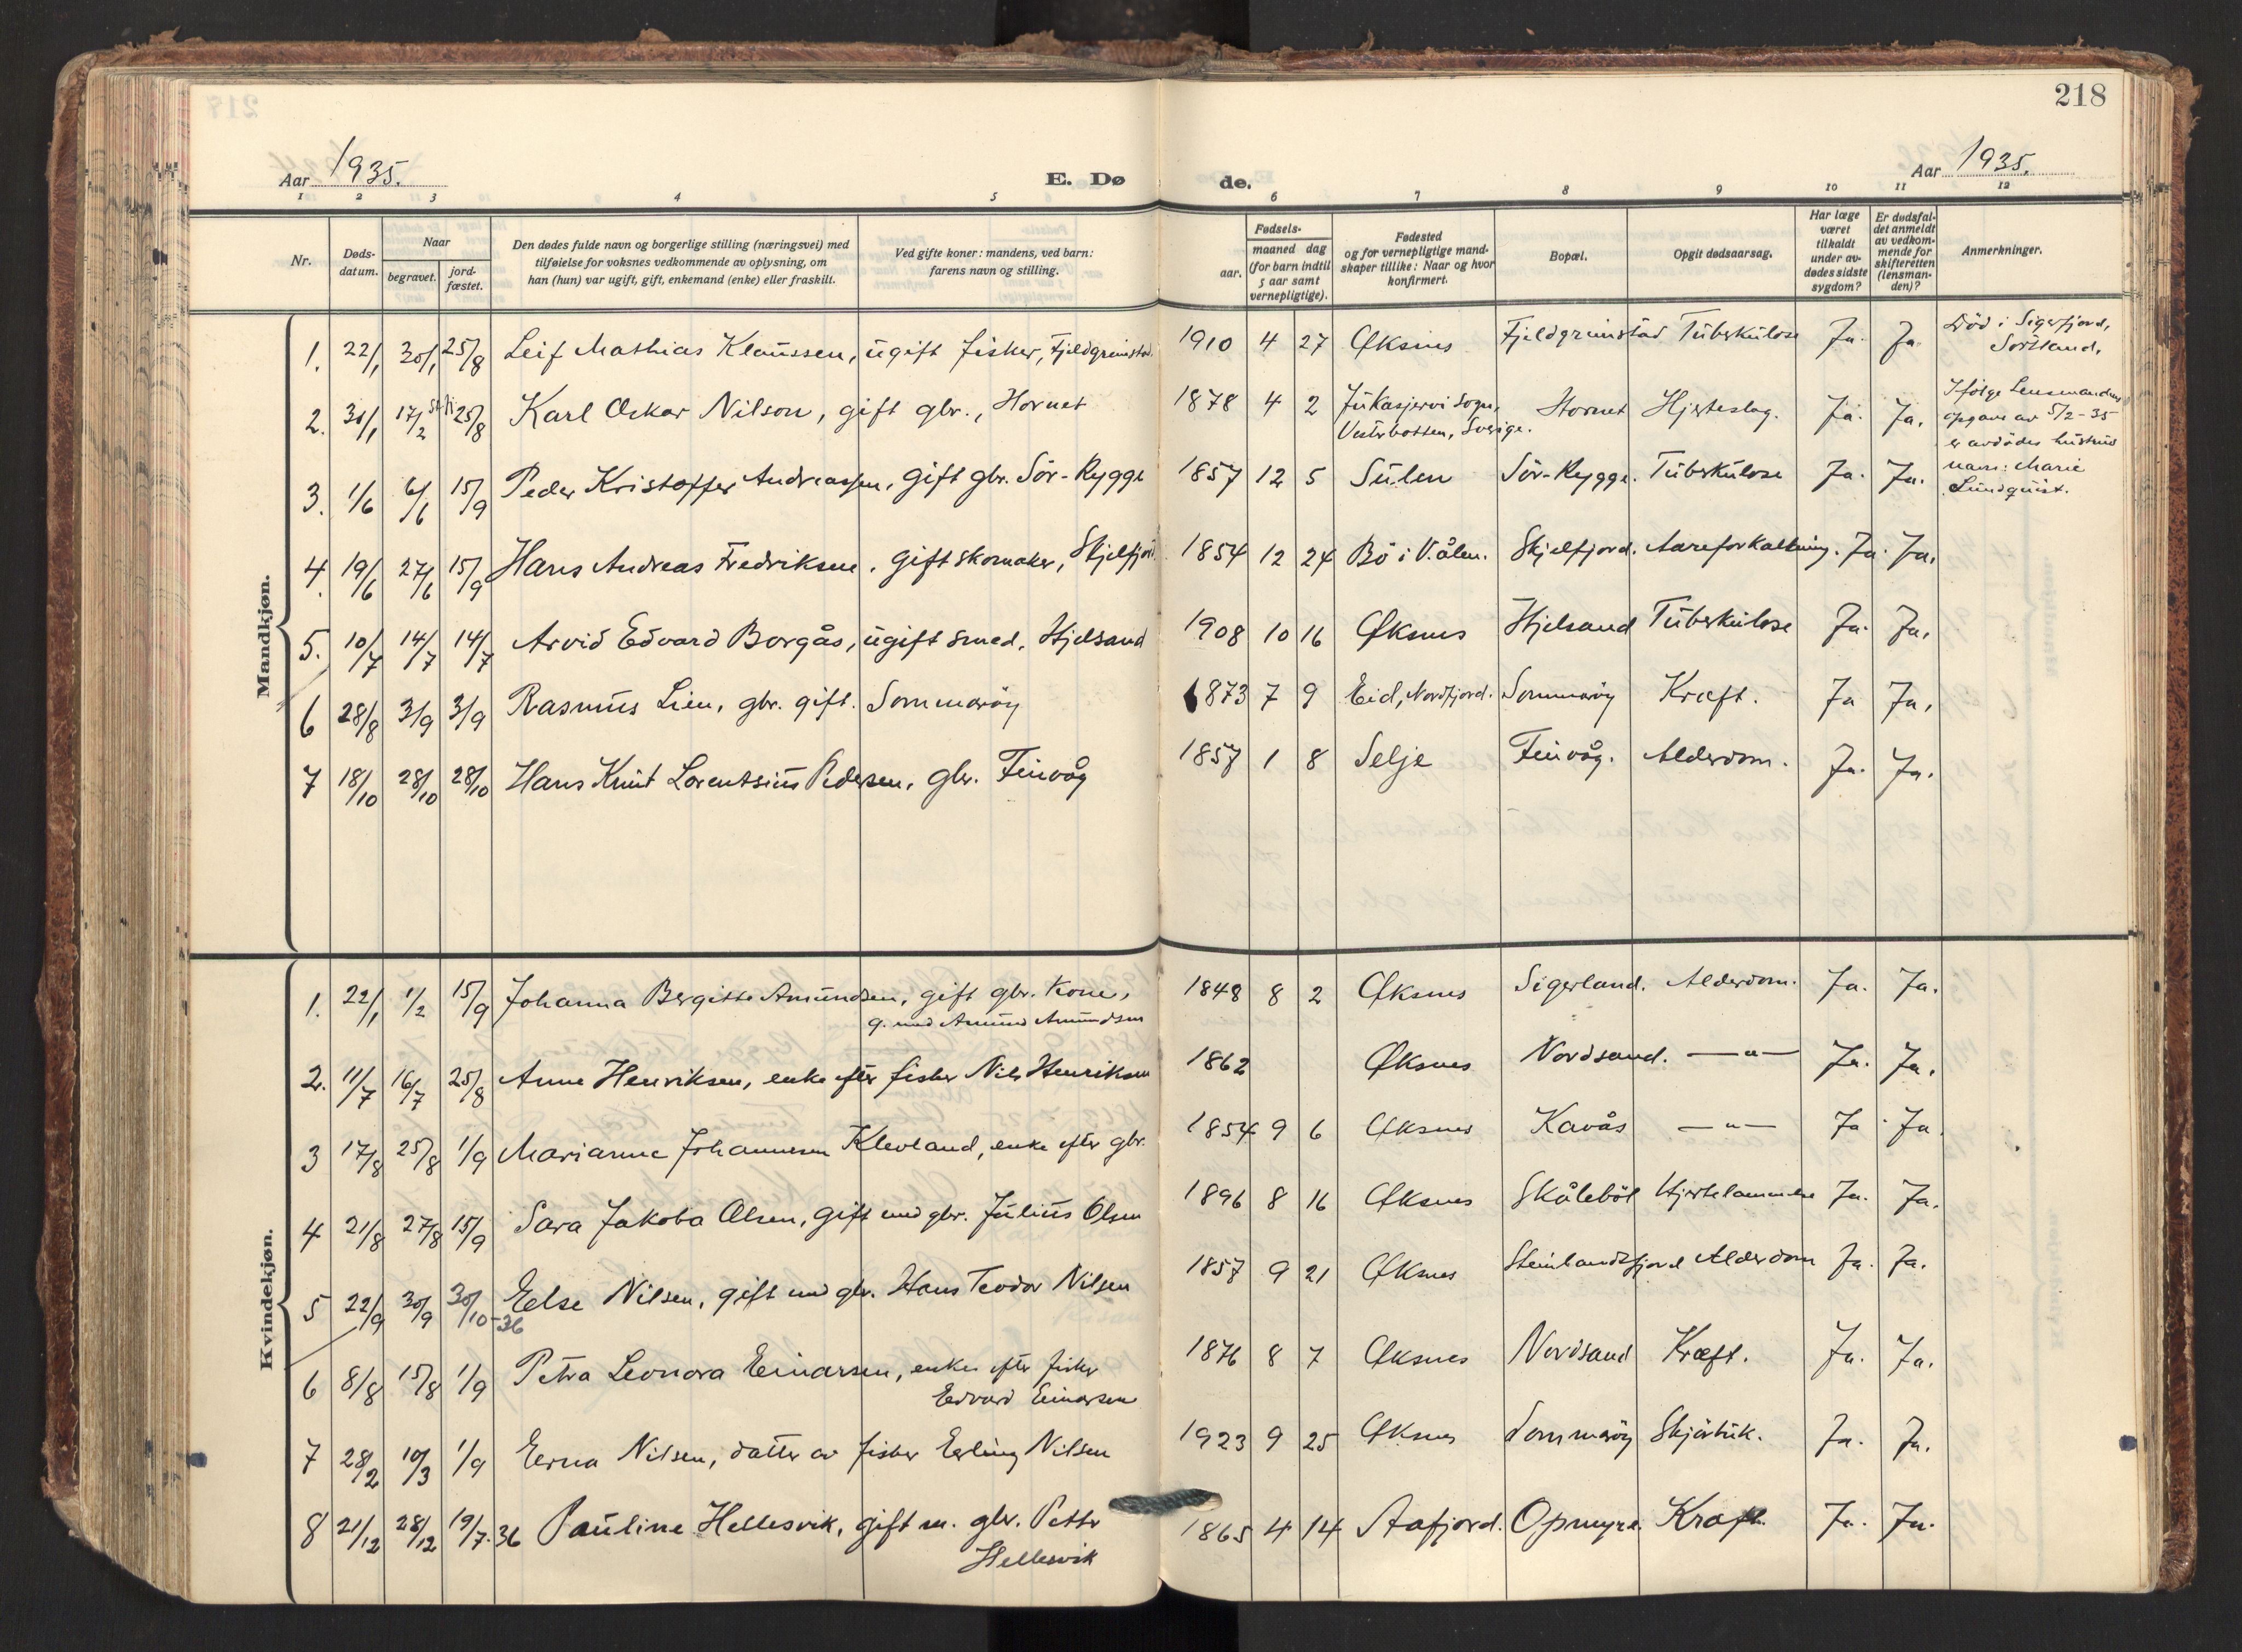 218
Aar 1935.
E. Døde.
Aar 1935.
1 2 3 4 5 6 7 8 9 10 11 12
Nr.
Døds-
datum.
Naar
begravet.
jord-
fæstet.
Den dødes fulde navn og borgerlige stilling (næringsvei) med
tilføielse for voksnes vedkommende av oplysning, om
han (hun) var ugift, gift, enkemand (enke) eller fraskilt.
Ved gifte koner: mandens, ved barn:
farens navn og stilling.
Fødsels-
aar.
maaned dag
(for barn indtil
5 aar samt
vernepligtige).
Fødested
og for vernepligtige mand-
skaper tillike: Naar og hvor
konfirmert.
Bopæl.
Opgit dødsaarsag.
Har læge
været
tilkaldt
under av-
dødes sidste
sygdom?
Er dødsfal-
det anmeldt
av vedkom-
mende for
skifteretten
(lensman-
den)?
Anmerkninger.
Mandkjøn.
1. 22/1 30/1 25/8 Leif Mathias Klaussen, ugift fisker, Fjeldgrimstad. 1910 4 27 Øksnes Fjeldgrimstad Tuberkulose Ja. Ja
Död i Sigerfjord,
Sortland.
2. 31/1 17/2 25/8 Karl Oskar Nilson, gift gbr., Hornet 1878 4 2 Jukasjervi sogn, Hornet Hjerteslag. Ja. Ja.
Vesterbotten, Sverige.
Ifölge Lensmandens
opgave av 5/2-35
er avdödes hustrus
navn: Marie
Lundquist.
3. 1/6 6/6 15/9 Peder Kristoffer Andreassen, gift gbr. Sör-Rygge 1857 12 5 Sulen Sör-Rygge. Tuberkulose Ja. Ja.
4. 19/6 27/6 15/9 Hans Andreas Fredriksen, gift skomaker, Skjelfjord 1854 12 24 Bö i V.ålen. Skjelfjord. Aareforkalkning. Ja. Ja.
5. 10/7 14/7 14/7 Arvid Edvard Borgås, ugift smed, Hjelsand 1908 10 16 Øksnes Hjelsand Tuberkulose Ja. Ja.
6 28/8 3/9 3/9 Rasmus Lien, gbr. gift. Sommaröy 1873 7 9 Eid, Nordfjord. Sommaröy Kræft. Ja Ja.
7 18/10 28/10 28/10 Hans Knut Lorentsius Pedersen, gbr. Finvåg 1857 1 8 Selje Finvåg. Alderdom. Ja. Ja.
Kvindekjøn.
1. 22/1 1/2 15/9 Johanna Bergitte Amundsen, gift gbr. kone, 1848 8 2 Øksnes Sigerland. Alderdom. Ja. Ja.
g. med Amund Amundsen
2. 11/7 16/7 25/8 Anne Henriksen, enke efter fisker Nils Henriksen 1862 Øksnes Nordsand. —"— Ja. Ja.
3 17/8 25/8 1/9 Marianne Johannesen Klevland, enke efter gbr. 1854 9 6 Øksnes Kavås —"— Ja Ja.
4 21/8 27/8 15/9 Sara Jakoba Olsen, gift med gbr. Julius Olsen 1896 8 16 Øksnes Skåleböl Hjertelammelse Ja. Ja.
5 22/9 30/9 30/10-36 Eelse Nilsen, gift med gbr. Hans Teodor Nilsen 1857 9 21 Øksnes Steinlandsfjord Alderdom Ja. Ja.
6 8/8 15/8 1/9 Petra Leonora Einarsen, enke efter fisker 1876 8 7 Øksnes Nordsand Kræft. Ja. Ja.
Edvard Einarsen
7 28/2 10/3 1/9 Erna Nilsen, datter av fisker Erling Nilsen 1923 9 25 Øksnes Sommaröy Skjörbuk. Ja. Ja.
8 21/12 28/12 19/7-36 Pauline Hellesvik, gift m. gbr. Petter 1865 4 14 Aafjord. Opmyre. Kræft. Ja. Ja.
Hellesvik